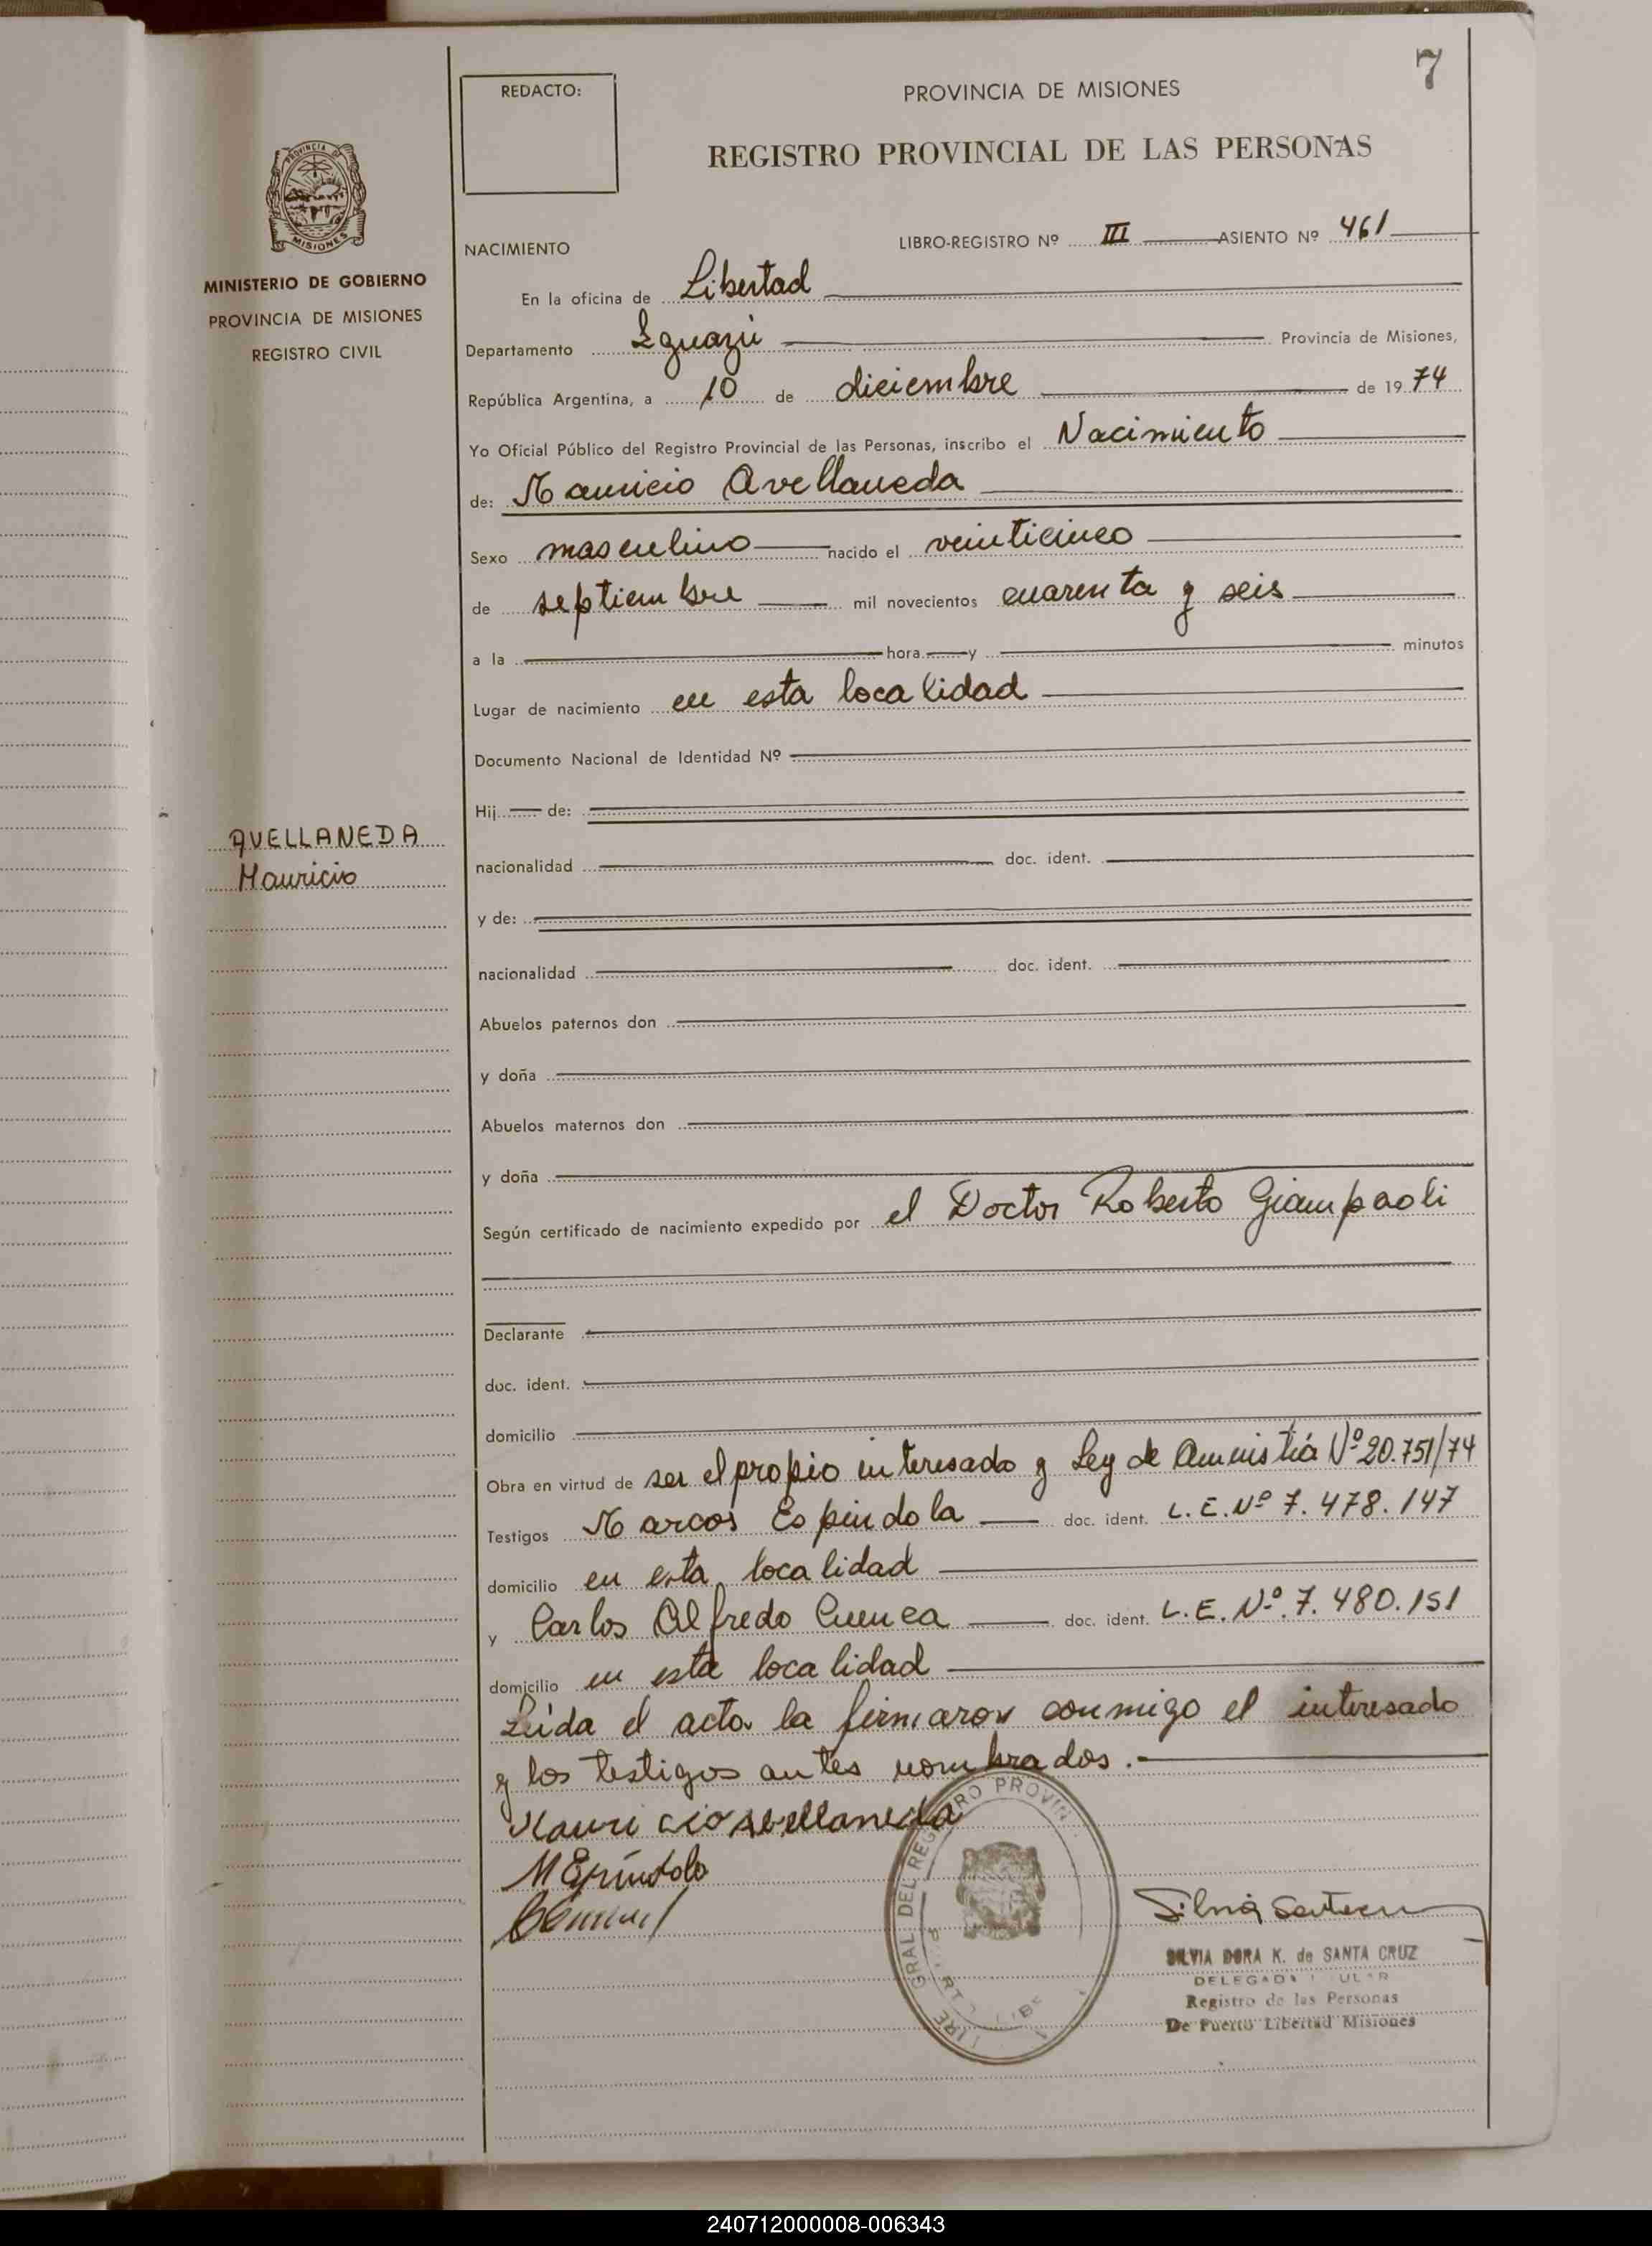 7
REDACTO:
PROVINCIA DE MISIONES
REGISTRO PROVINCIAL DE LAS PERSONAS
PROVINCIA DE
MISIONES
MINISTERIO DE GOBIERNO
PROVINCIA DE MISIONES
REGISTRO CIVIL
AVELLANEDA
Mauricio
NACIMIENTO
LIBRO-REGISTRO Nº III ASIENTO Nº 461
En la oficina de Libertad
Departamento Iguazú Provincia de Misiones,
República Argentina, a 10 de diciembre de 1974
Yo Oficial Público del Registro Provincial de las Personas, inscribo el Nacimiento
de: Mauricio Avellaneda
Sexo masculino nacido el veinticinco
de septiembre mil novecientos cuarenta y seis
a la hora y minutos
Lugar de nacimiento en esta localidad
Documento Nacional de Identidad Nº
Hij de:
nacionalidad doc. ident.
y de:
nacionalidad doc. ident.
Abuelos paternos don
y doña
Abuelos maternos don
y doña
Según certificado de nacimiento expedido por el Doctor Roberto Giampaoli
Declarante
doc. ident.
domicilio
Obra en virtud de ser el propio interesado y Ley de Amnistía Nº 20.751/74
Testigos Marcos Espindola doc. ident. L.E. Nº 7.478.147
domicilio en esta localidad
y Carlos Alfredo Cuenca doc. ident. L.E. Nº 7.480.151
domicilio en esta localidad
Leida el acta la firmaron conmigo el interesado
y los testigos antes nombrados.
Mauricio Avellaneda
M Espíndola
GRAL DEL REGISTRO PROVIN
SILVIA DORA K. de SANTA CRUZ
Registro de las Personas
De Puerto Libertad Misiones
240712000008-006343